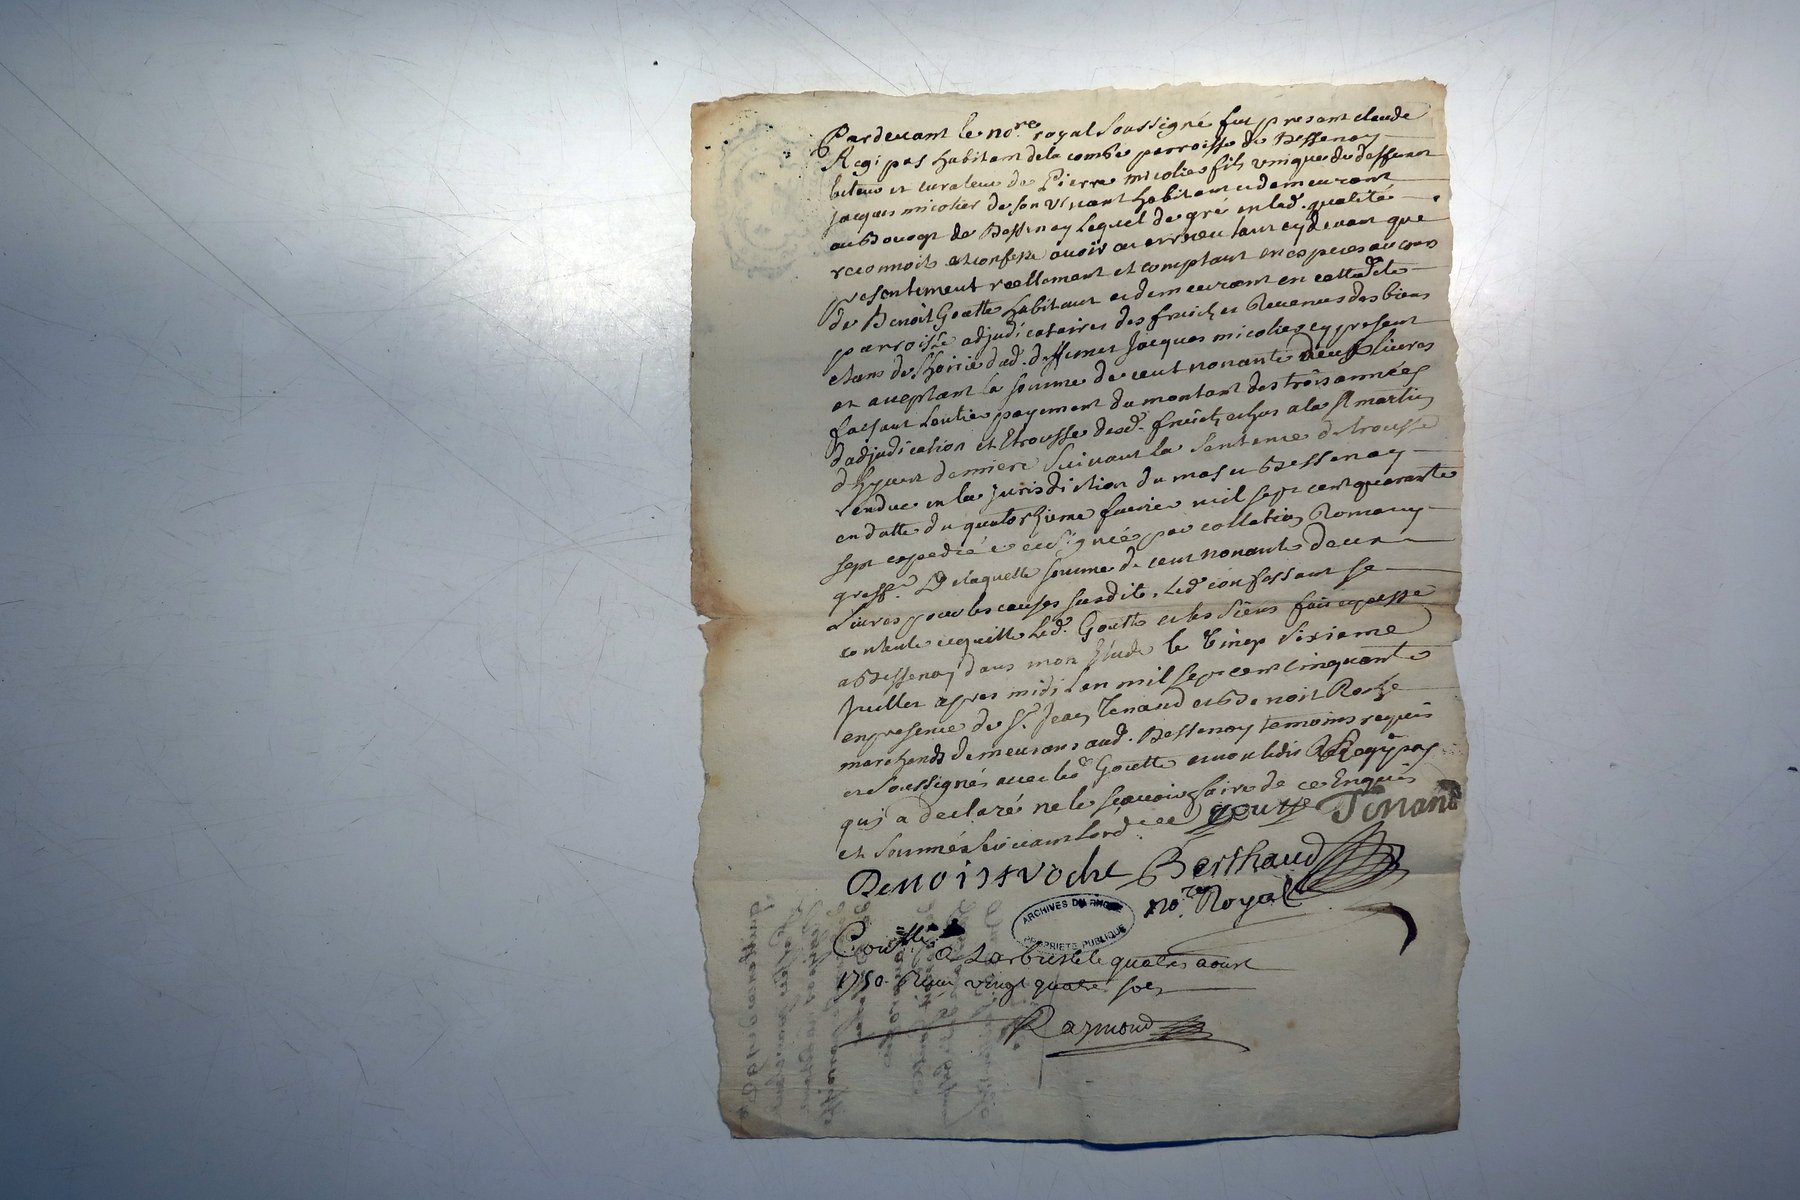 Pardevant le no.re royal soussigné fut present claude
Regipas habitant de la combe parroisse de Bessenay
tuteur et curateur de Pierre micolier fils unique du deffunt
jacques micolier de son vivant habitant et demeurant
au Bourg de Bessenay Lequel de gré en led. qualité
reconnoit et confesse avoir eu et receu tant cy devant que
presentement reellement et comptant en especes au cours
de Benoit Goutte habitant et demeurant en cette dte
parroisse adjudicataire des fruits et Revenus des biens
etans de lhoirie dud. deffunct Jacques micolier cy present
et acceptant la somme de cent nonante deux livres
faisant Lentier payement du montant des trois années
dadjudication et Etrousse desd. fruits echus a la st martin
dhyvert derniere suivant la sentence detrousse
rendue en la Jurisdiction du mas et Bessenay
en datte du quatorzieme fevrier mil sept cent quarante
sept expediée et signée par collation Romany
greff.r De laquelle somme de cent nonante deux
Livres pour les causes susdite, Led. confessant se
contente et quitte Led. Goutte et les siens fait et passé
a Bessenay dans mon Etude le vingt sixieme
Juillet apres midi Lan mil sept cent cinquante
en presence de Sr. Jean Tenaud et Benoit Roche
marchands demeurans aud. Bessenay temoins requis
et soussignés avec led. Goutte et non ledit Regipas
qui a declaré ne le sçavoir faire de ce Enquis
et sommé suivant lord.ce goutte Tenaud
Benoist roche Berthaud
no.re Royal
ARCHIVES DU RHONE
PROPRIETE PUBLIQUE
Conllé a Larbresle le quatre aoust
1750. Reçu vingt quatre sols
Raymond